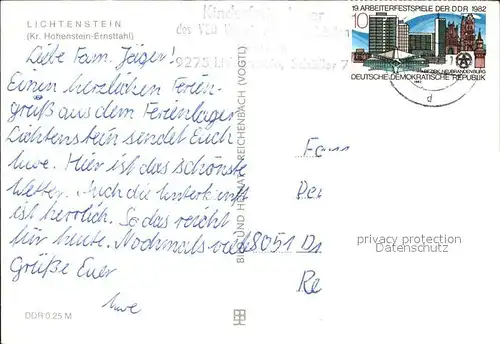 LICHTENSTEIN
(Kr. Hohenstein-Ernstthal)
Kinderferienlager
des VEB
9275 Lichtenstein, Schäller 7
19. ARBEITERFESTSPIELE DER DDR 1982
10
BEZIRK NEUBRANDENBURG
DEUTSCHE DEMOKRATISCHE REPUBLIK
d
Liebe Fam. Jäger!
Einen herzlichen Ferien-
gruß aus dem Ferienlager
Lichtenstein sendet Euch
Uwe. Hier ist das schönste
Wetter. Auch die Unterkunft
ist herrlich. So das reicht
für heute. Nochmals viele
Grüße Euer
Uwe
BILD UND HEIMAT REICHENBACH (VOGTL)
Fam
8051 Dr
privacy protection
Datenschutz
DDR 0.25 M